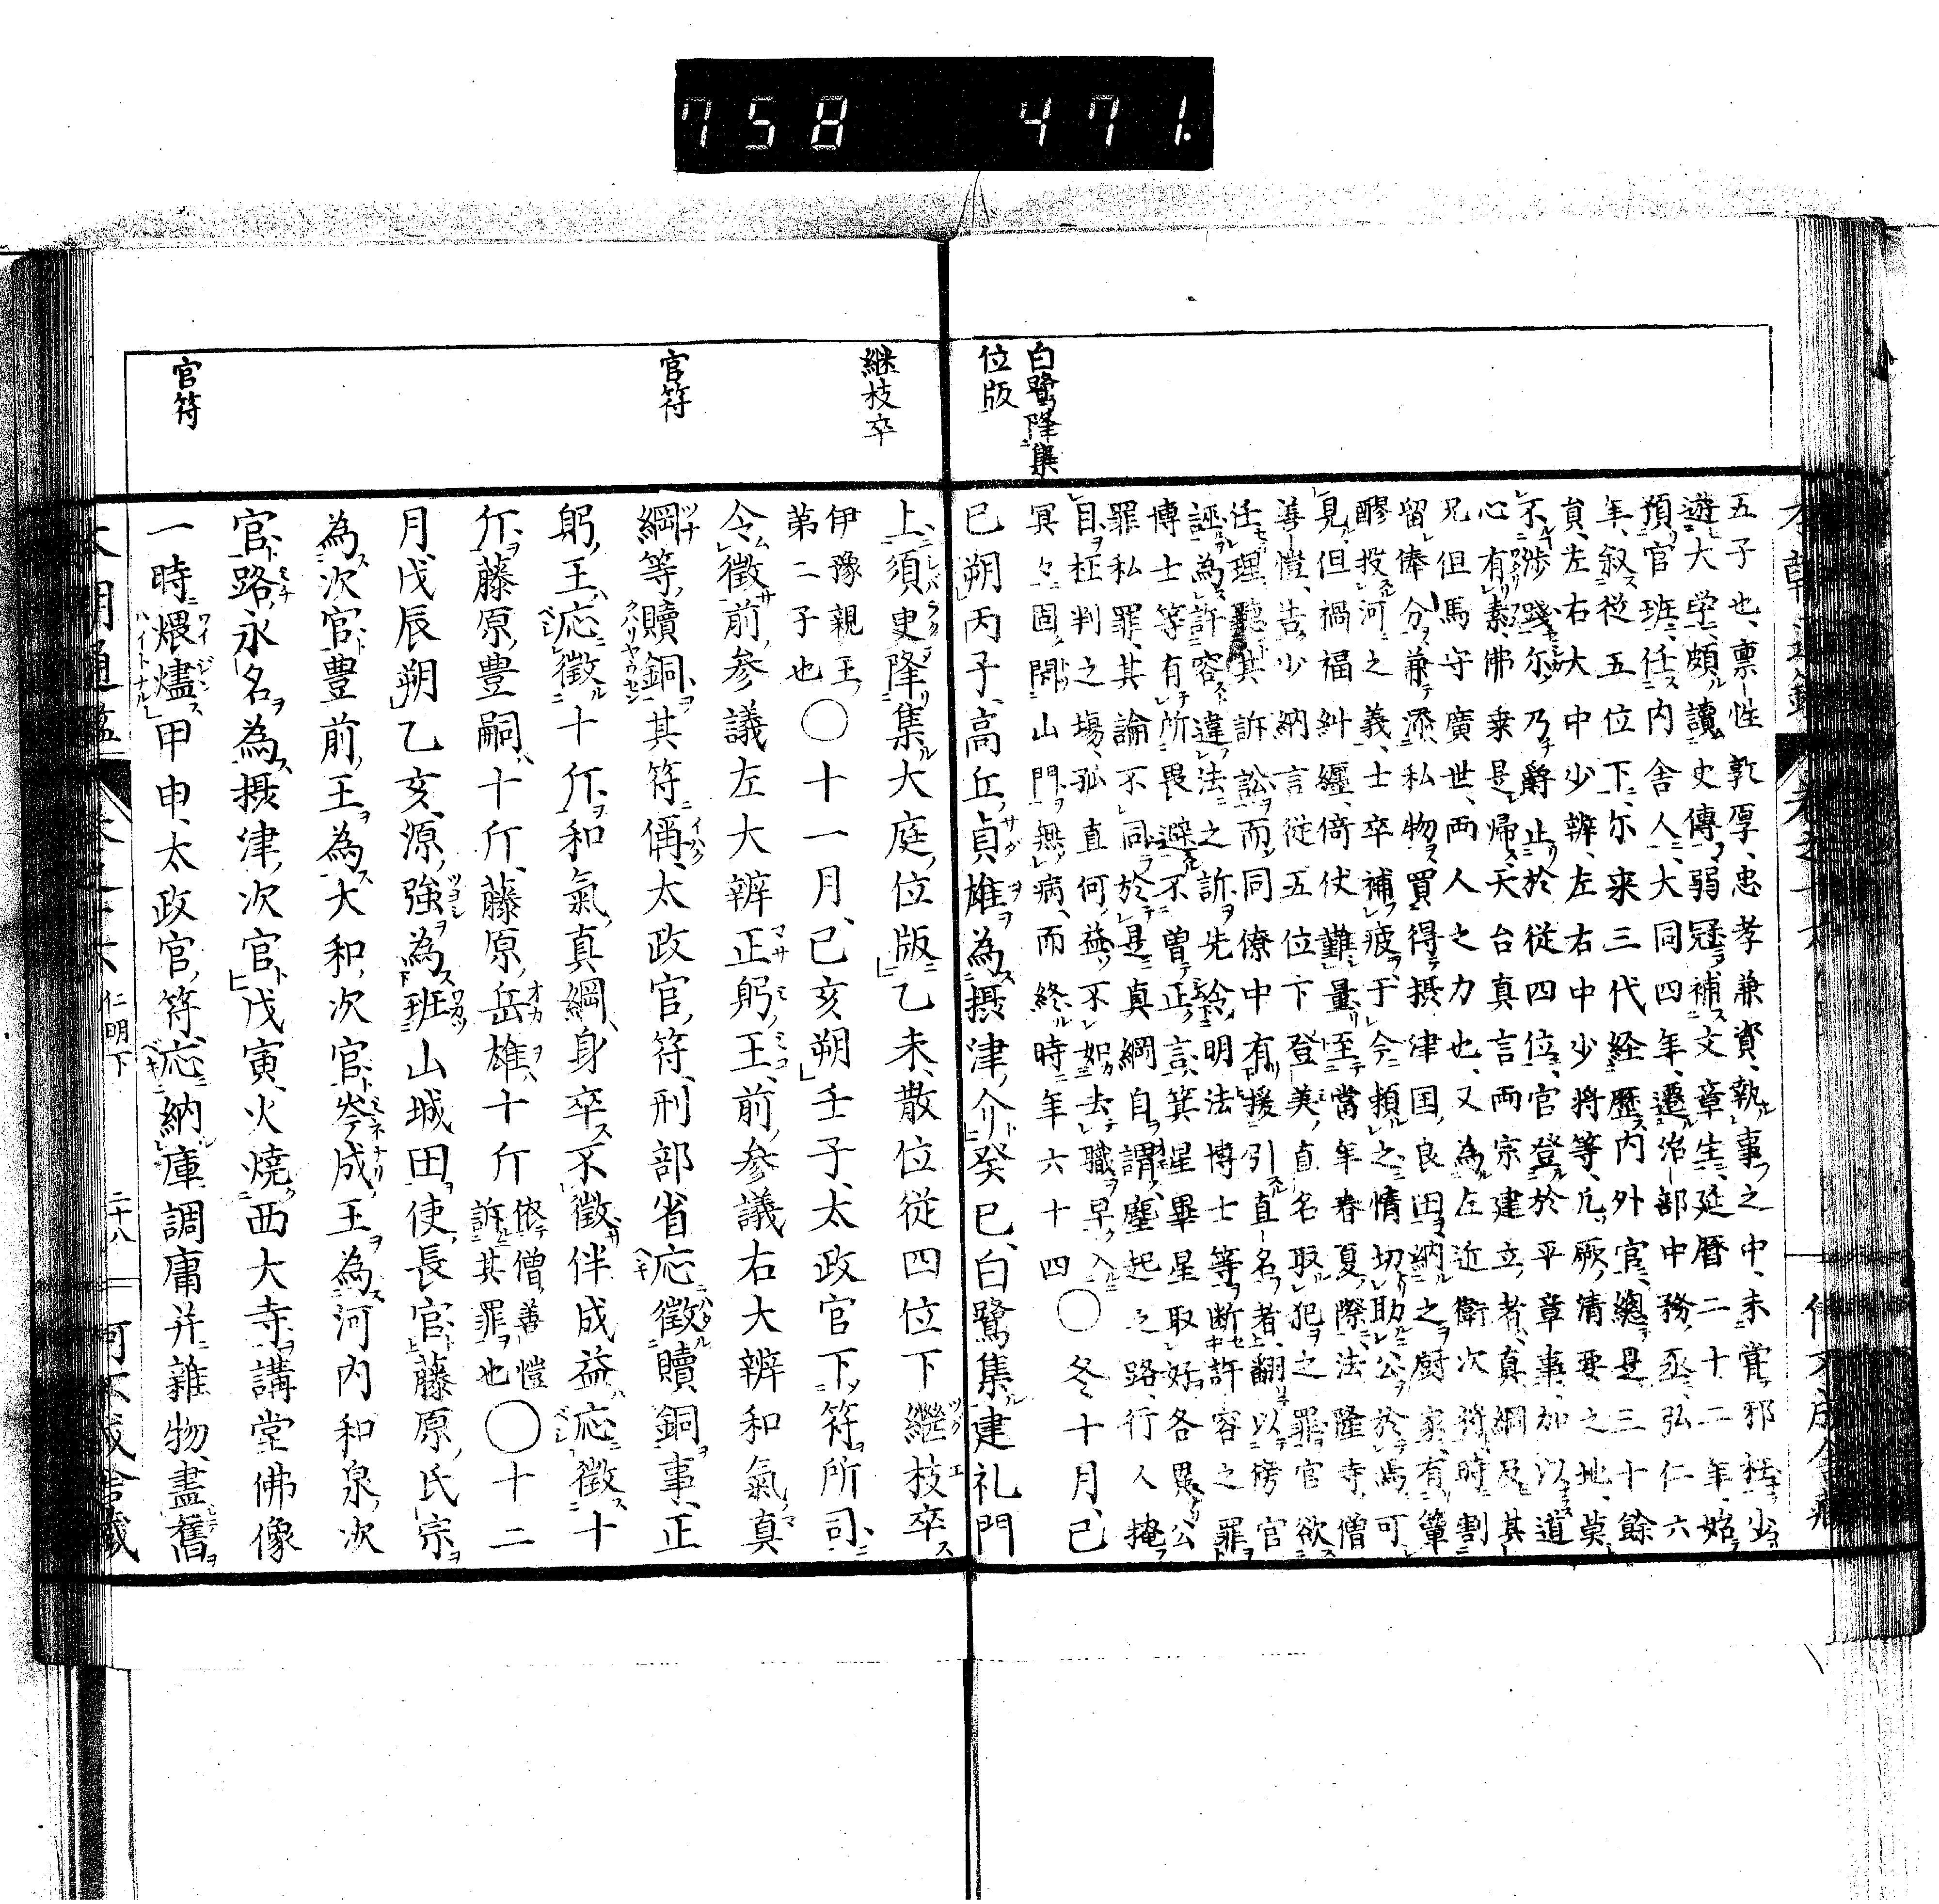 758 471.
白鷺降集
位版
五子也、稟性敦厚、忠孝兼資、執事之中、未嘗邪枉、少
遊大学、頗讀史傳、弱冠補文章生、延暦二十二年、始
預官班、任内舎人、大同四年、遷治部中務丞、弘仁六
年、叙従五位下、尓来三代経歴内外官、總是三十餘
員、左右大中少辨、左右中少将等、凡厥清要之地、莫
不渉踐尓、乃爵止於従四位、官登於平章事、加以道
心有素、佛乗是歸、天台真言両宗建立者、真綱及其
兄但馬守廣世、両人之力也、又為左近衛次将、時割
留俸分、兼添私物、買得摂津国良田、納之厨家、有箪
醪投河之義、士卒補疲、于今頼之、情切助公、於焉可
見、但禍福糾纒、倚伏難量、至當年春夏際、法隆寺僧
善愷、告少納言従五位下登美直名取犯之罪、官欲
任理聽其訴訟、而同僚中有援引直名者、翻以傍官
誣為許容違法之訴、先給明法博士等、断許容之罪
博士等有所畏避不曽正言、箕星畢星取好各異、公
罪私罪、其論不同、於是真綱自謂、塵起之路、行人掩
目、枉判之場、孤直何益、不如去職早入
冥々固閇山門、無病而終、時年六十四〇冬十月、己
巳朔丙子、高丘貞雄為摂津介癸巳、白鷺集建礼門
継枝卒
官符
官符
上、須臾降集大庭位版乙未、散位従四位下継枝卒
伊豫親王第二子也〇十一月、己亥朔壬子、太政官下符所司、
令徴前参議左大辨正躬王、前参議右大辨和氣真
綱等贖銅、其符偁、太政官符、刑部省応徴贖銅事、正
躬王、応徴十斤、和氣真綱、身卒不徴伴成益、応徴十
斤、藤原豊嗣、十斤、藤原岳雄、十斤依僧善愷訴其罪也〇十二
月、戊辰朔乙亥、源強為班山城田使長官、藤原氏宗
為次官豊前王為大和次官岑成王為河内和泉次
官、路永名為摂津次官戊寅、火焼西大寺講堂佛像
一時煨燼甲申、太政官符、応納庫調庸并雑物、盡舊
仁明下
二十八